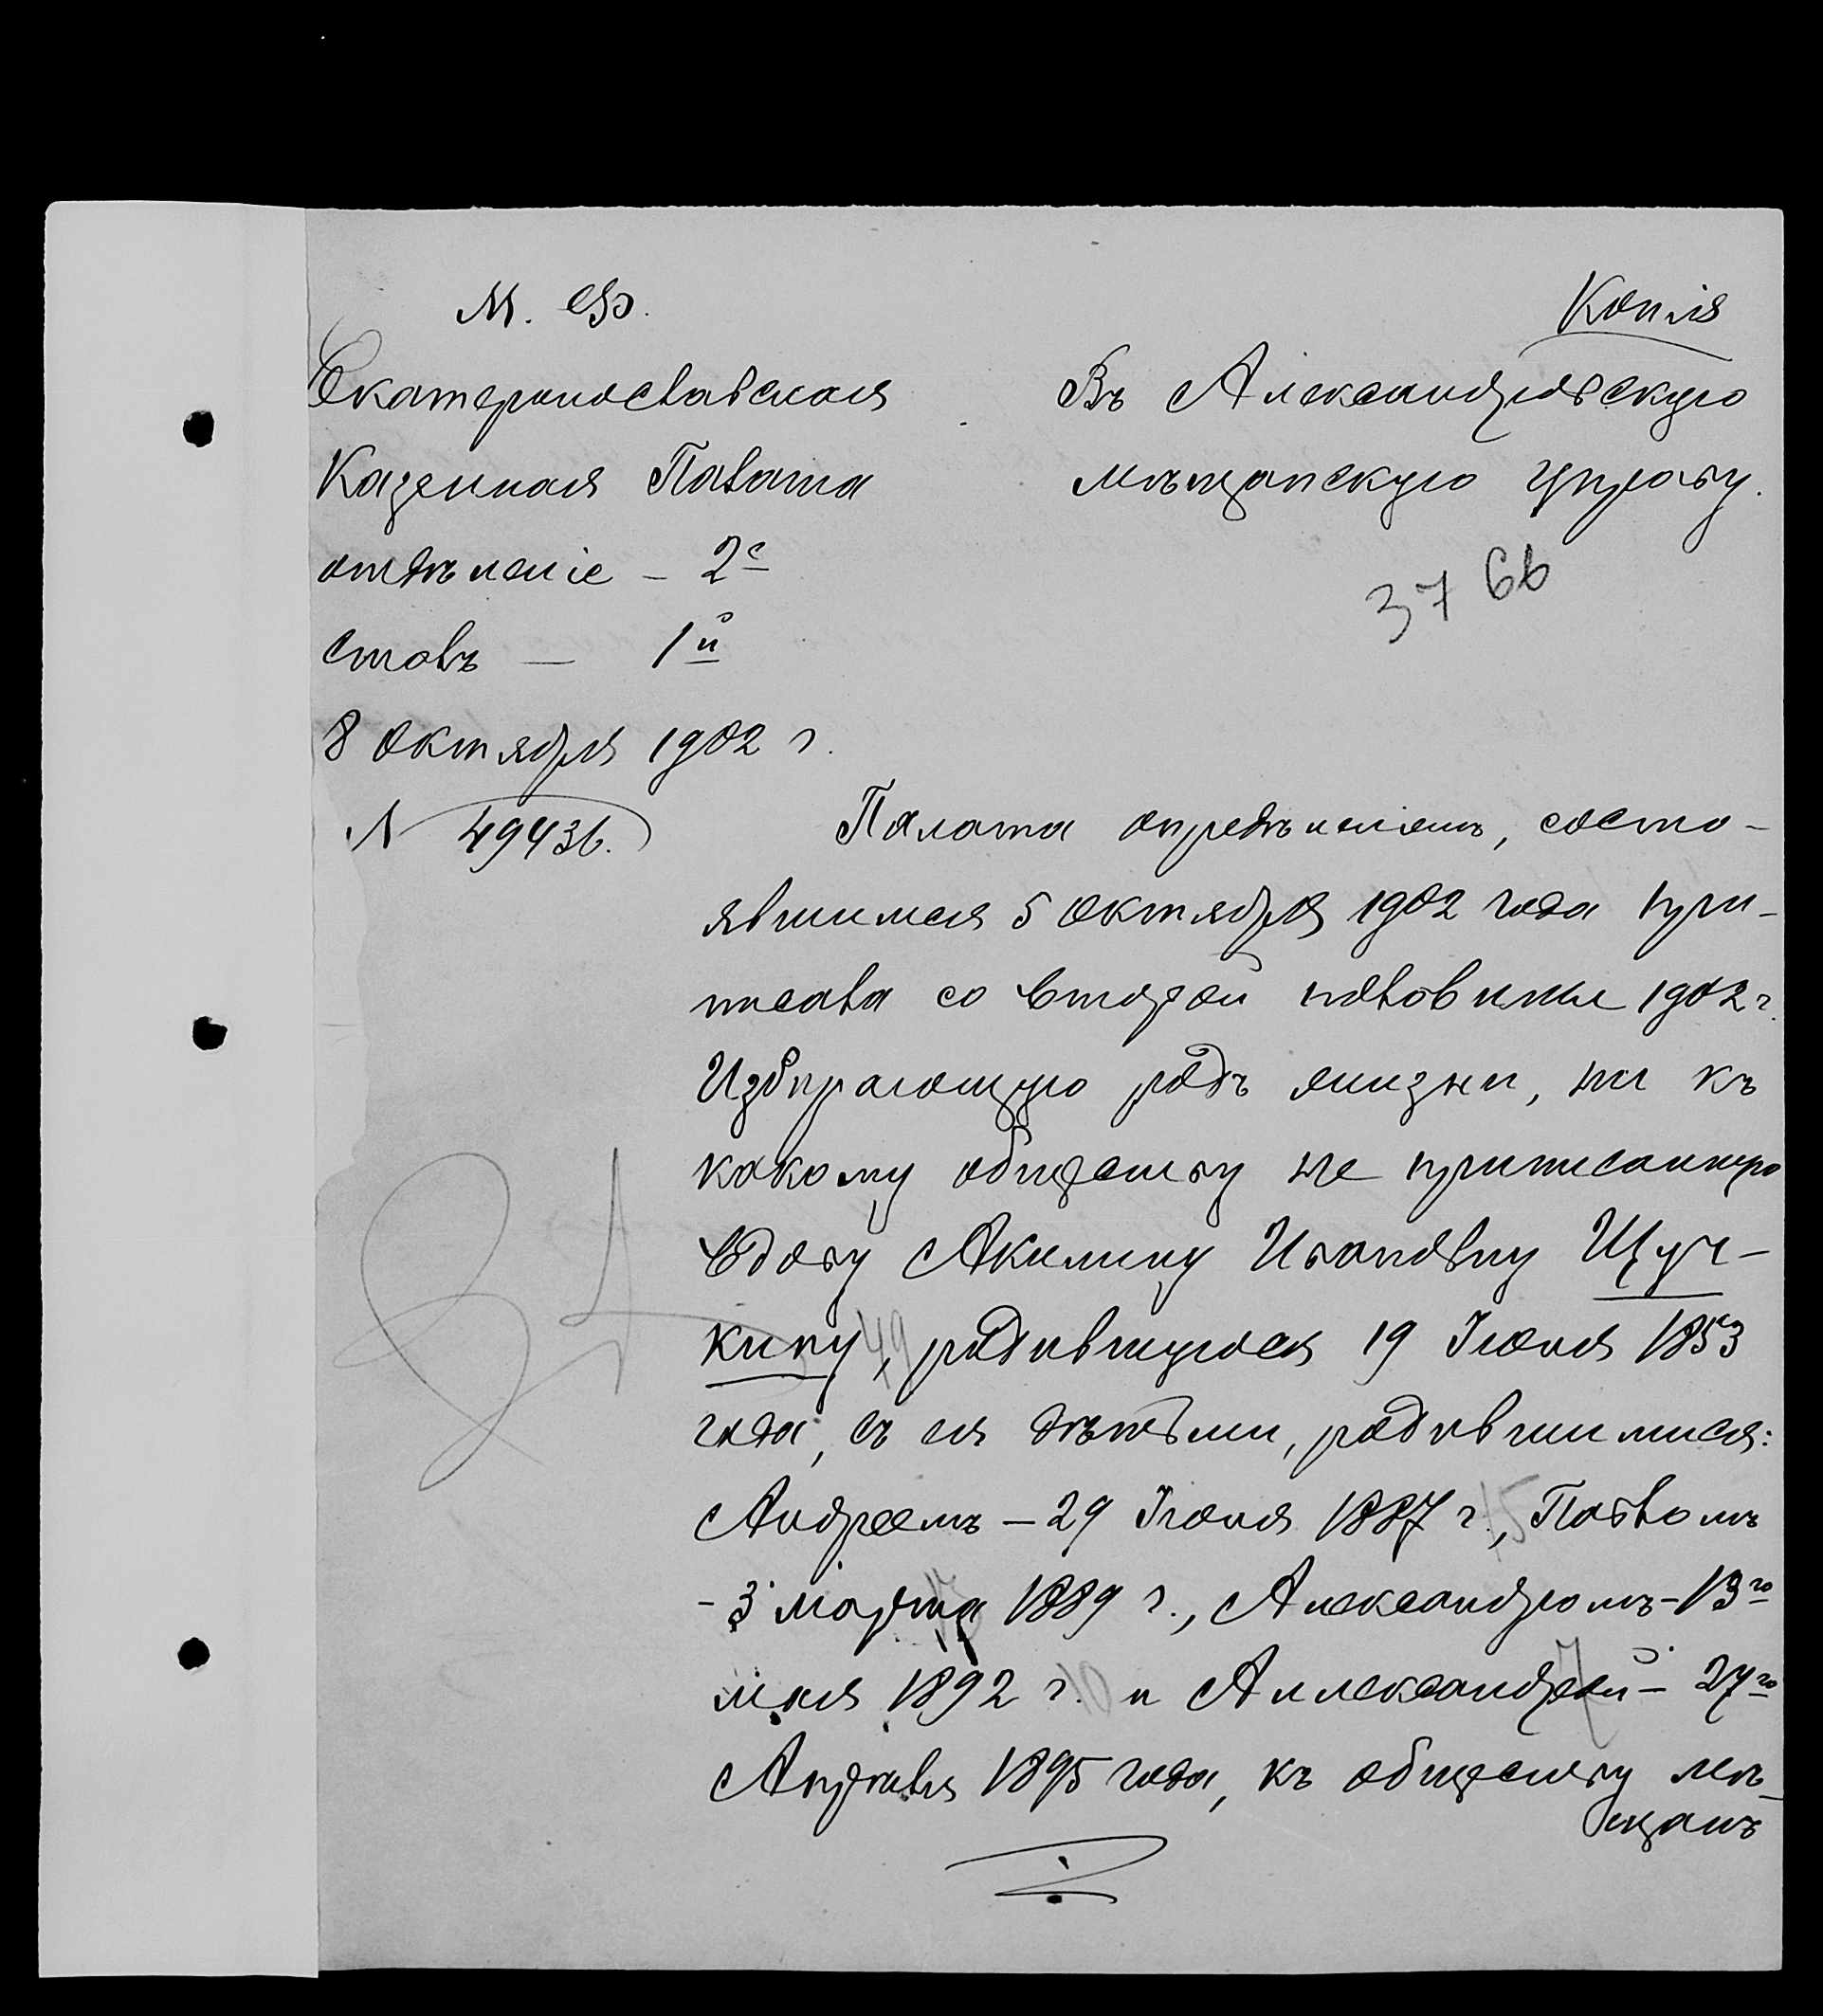 М. Ф.
Копія
Екатеринославская
Казенная Палата
отдѣленіе – 2е
столъ — 1й
8 октября 1902 г.
№ 49436.
Въ Александровскую
мѣщанскую управу.
37 66
Палата опредѣленіемъ, состо-
явшимся 5 октября 1902 года при-
писала со второй половины 1902 г.
Избирающую родъ жизни, ни къ
какому обществу не приписанную
вдову Акилину Ивановну Щуч-
кину, 49 родившуюся 19 Іюня 1853
года, съ ея дѣтьми, родившимися:
Андреемъ – 29 Іюня 1887 г., 15 Павломъ
– 3 марта 1889 г., 13 Александромъ – 13го
мая 1892 г. 10 и Александрой – 27го 7
Апрѣля 1895 года, къ обществу мѣ-
щанъ